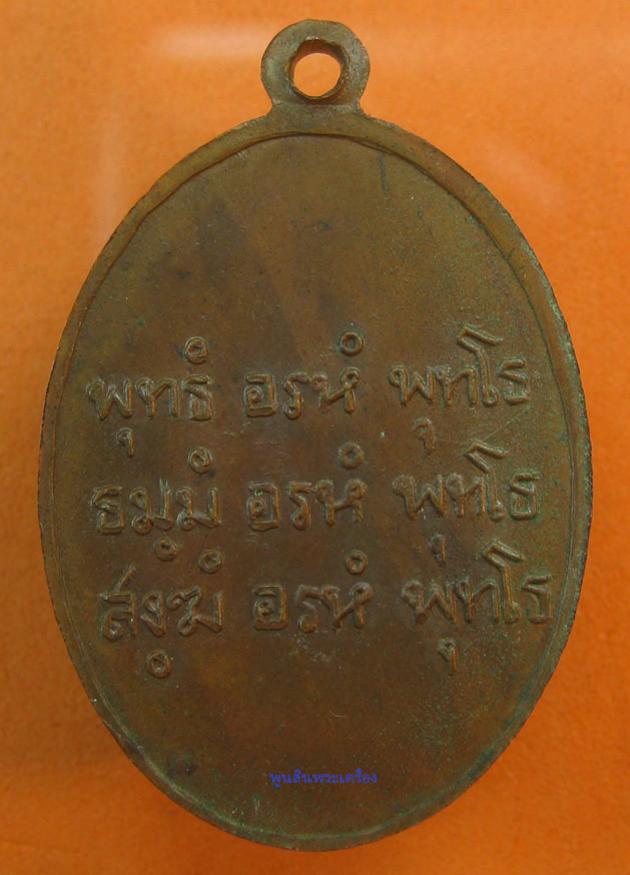 พุทธํ อรหํ พุทโธ
ธมฺมํ อรหํ พุทโธ
สงฺฆํ อรหํ พุทโธ
พูนสินพระเครื่อง